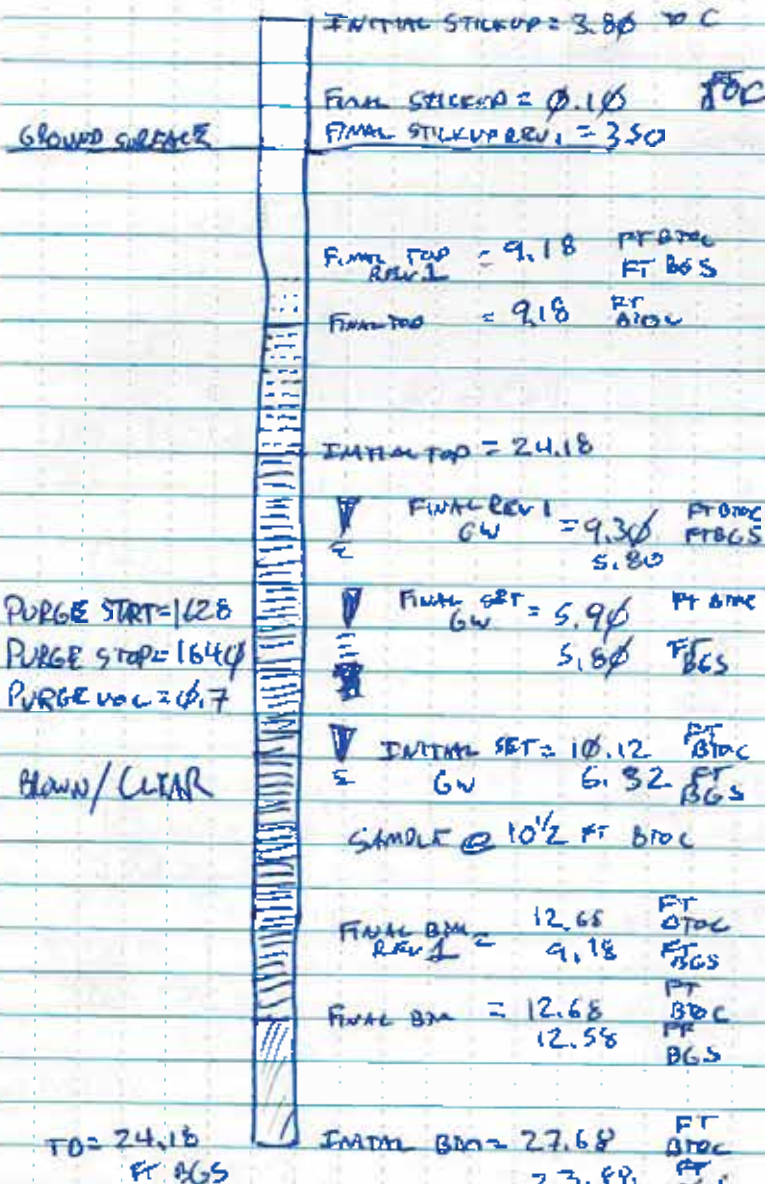 INITIAL STICKUP = 3.80 TOC
FINAL STICKUP = 0.10 TOC
GROUND SURFACE
FINAL STICKUP REV. 1 = 3.50
FINAL TOP REV 1 = 9.18 FT BTOC
FT BGS
FINAL TOP = 9.18 FT BTOC
INITIAL TOP = 24.18
FINAL REV 1 GW = 9.30 FT BTOC
5.80 FT BGS
PURGE STRT = 1628
FINAL SET GW = 5.90 FT BTOC
PURGE STOP = 1640
5.80 FT BGS
PURGE VOL = 0.7
INITIAL SET = 10.12 FT BTOC
GW 6.32 FT BGS
BROWN / CLEAR
SAMPLE @ 10 1/2 FT BTOC
FINAL BTM REV 1 = 12.68 FT BTOC
9.18 FT BGS
FINAL BTM = 12.68 FT BTOC
12.58 FT BGS
TD = 24.18
FT BGS
INITIAL BTM = 27.68 FT BTOC
23.88